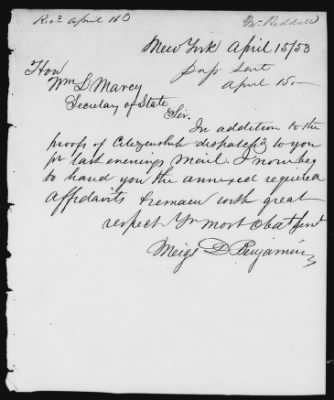 Rec.d April 16th
Mr Reddall
New York April 15/53
pasp sent
April 15.
Hon
Wm L Marcy
Secretary of State
Sir.
In addition to the
proofs of Citizenship dispatchd to you
pr last evenings mail. I now beg
to hand you the annexed required
Affidavits & remain with great
respect Yr Most Obdt Servt
Meigs D. Benjamin